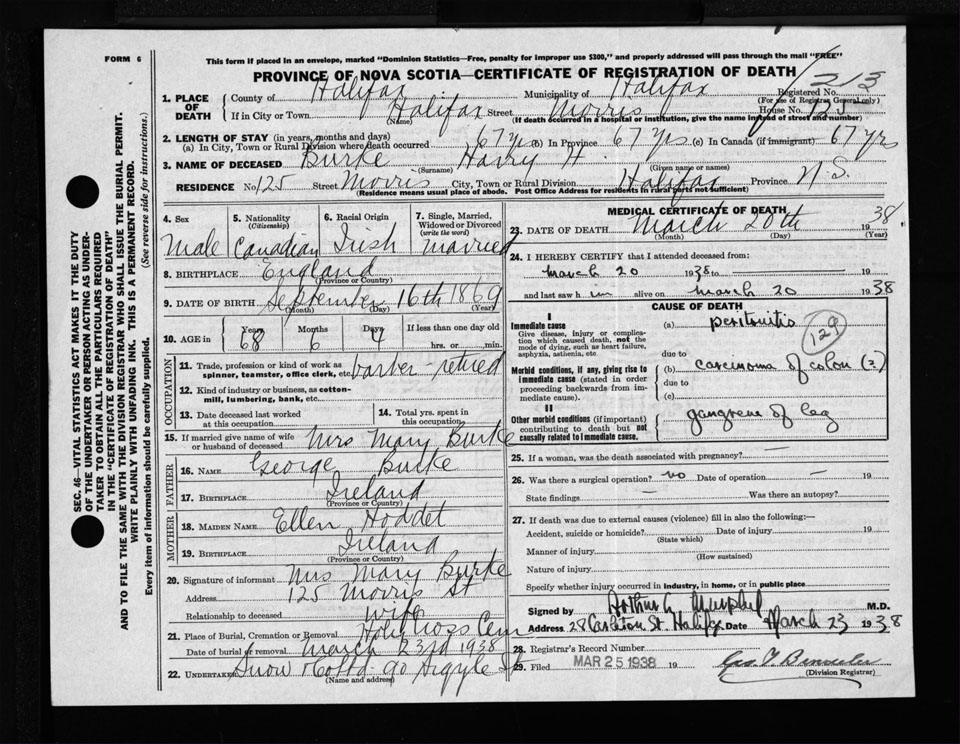 FORM 6
This form if placed in an envelope, marked "Dominion Statistics—Free, penalty for improper use $300," and properly addressed will pass through the mail "FREE"
PROVINCE OF NOVA SCOTIA—CERTIFICATE OF REGISTRATION OF DEATH
213
Registered No.
(For use of Registrar General only)
1. PLACE OF DEATH
County of Halifax Municipality of Halifax
If in City or Town Halifax Street Morris House No. 125
(Name) (If death occurred in a hospital or institution, give the name instead of street and number)
2. LENGTH OF STAY (in years, months and days)
(a) In City, Town or Rural Division where death occurred 67 yrs (b) In Province 67 yrs (c) In Canada (if immigrant) 67 yrs
3. NAME OF DECEASED Burke Harry H.
(Surname) (Given name or names)
RESIDENCE No. 125 Street Morris City, Town or Rural Division Halifax Province N.S.
(Residence means usual place of abode. Post Office Address for residents in rural parts not sufficient)
4. Sex Male
5. Nationality (Citizenship) Canadian
6. Racial Origin Irish
7. Single, Married, Widowed or Divorced (write the word) married
8. BIRTHPLACE England
(Province or Country)
9. DATE OF BIRTH September 16th 1869
(Month) (Day) (Year)
10. AGE in Years 68 Months 6 Days 4 If less than one day old
hrs. or min.
OCCUPATION
11. Trade, profession or kind of work as spinner, teamster, office clerk, etc. barber - retired
12. Kind of industry or business, as cotton-mill, lumbering, bank, etc.
13. Date deceased last worked at this occupation
14. Total yrs. spent in this occupation
15. If married give name of wife or husband of deceased Mrs Mary Burke
FATHER
16. NAME George Burke
17. BIRTHPLACE Ireland
(Province or Country)
MOTHER
18. MAIDEN NAME Ellen Hoddet
19. BIRTHPLACE Ireland
(Province or Country)
20. Signature of informant Mrs Mary Burke
Address 125 Morris St
Relationship to deceased wife
21. Place of Burial, Cremation or Removal Holy Cross Cem
Date of burial or removal March 23rd 1938
22. UNDERTAKER Snow & Co Ltd 90 Argyle St
(Name and address)
MEDICAL CERTIFICATE OF DEATH
23. DATE OF DEATH March 20th 1938
(Month) (Day) (Year)
24. I HEREBY CERTIFY that I attended deceased from:
March 20 1938 to 19
and last saw him alive on March 20 1938
CAUSE OF DEATH
I
Immediate cause
Give disease, injury or complication which caused death, not the mode of dying, such as heart failure, asphyxia, asthenia, etc
(a) peritonitis
129
due to
Morbid conditions, if any, giving rise to immediate cause (stated in order proceeding backwards from immediate cause).
(b) carcinoma of colon (?)
due to
(c)
II
Other morbid conditions (if important) contributing to death but not causally related to immediate cause.
gangrene of leg
25. If a woman, was the death associated with pregnancy? —
26. Was there a surgical operation? no Date of operation — 19
State findings — Was there an autopsy?
27. If death was due to external causes (violence) fill in also the following:—
Accident, suicide or homicide? Date of injury 19
(State which)
Manner of injury
(How sustained)
Nature of injury
Specify whether injury occurred in industry, in home, or in public place
Signed by Arthur G Murphy M.D.
Address 28 Carleton St. Halifax Date March 23 1938
28. Registrar's Record Number
29. Filed MAR 25 1938 19
(Division Registrar)
SEC. 46—VITAL STATISTICS ACT MAKES IT THE DUTY
OF THE UNDERTAKER OR PERSON ACTING AS UNDER-
TAKER TO OBTAIN ALL THE PARTICULARS REQUIRED
IN THE "CERTIFICATE OF REGISTRATION OF DEATH"
AND TO FILE THE SAME WITH THE DIVISION REGISTRAR WHO SHALL ISSUE THE BURIAL PERMIT.
WRITE PLAINLY WITH UNFADING INK. THIS IS A PERMANENT RECORD.
Every item of information should be carefully supplied. (See reverse side for instructions.)